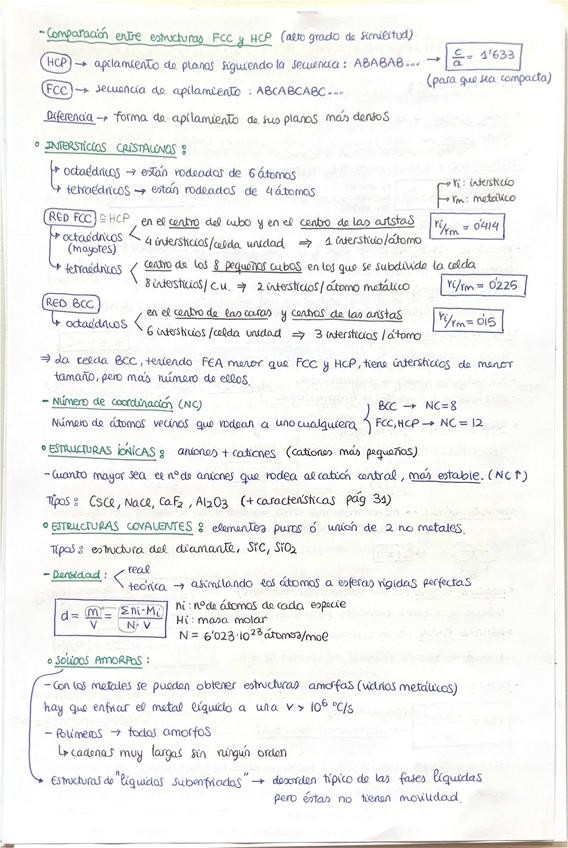 - Comparación entre estructuras FCC y HCP (alto grado de similitud)
HCP → apilamiento de planos siguiendo la secuencia : ABABAB... → c/a = 1'633
(para que sea compacta)
FCC → secuencia de apilamiento : ABCABCABC...
Diferencia → forma de apilamiento de sus planos más densos
° INTERSTICIOS CRISTALINOS :
↳ octaédricos → están rodeados de 6 átomos
↳ tetraédricos → están rodeados de 4 átomos
ri : intersticio
rm : metálico
RED FCC ≅ HCP
↳ octaédricos (mayores) < en el centro del cubo y en el centro de las aristas
4 intersticios/celda unidad ⇒ 1 intersticio/átomo
ri/rm = 0'414
↳ tetraédricos < centro de los 8 pequeños cubos en los que se subdivide la celda
8 intersticios/c.u. ⇒ 2 intersticios/átomo metálico
ri/rm = 0'225
RED BCC
↳ octaédricos < en el centro de las caras y centros de las aristas
6 intersticios/celda unidad ⇒ 3 intersticios/átomo
ri/rm = 0'15
⇒ La celda BCC, teniendo FEA menor que FCC y HCP, tiene intersticios de menor
tamaño, pero más número de ellos.
- Número de coordinación (NC)
Número de átomos vecinos que rodean a uno cualquiera
BCC → NC = 8
FCC, HCP → NC = 12
° ESTRUCTURAS IÓNICAS : aniones + cationes (cationes más pequeños)
- Cuanto mayor sea el nº de aniones que rodea al catión central, más estable. (NC ↑)
Tipos : CsCl, NaCl, CaF2, Al2O3 (+ características pág 31)
° ESTRUCTURAS COVALENTES : elementos puros ó unión de 2 no metales.
Tipos : estructura del diamante, SiC, SiO2
- Densidad : < real
teórica → asimilando los átomos a esferas rígidas perfectas
d = m/V = Σni·Mi/N·V
ni : nº de átomos de cada especie
Mi : masa molar
N = 6'023·10²³ átomos/mol
° SÓLIDOS AMORFOS :
- Con los metales se pueden obtener estructuras amorfas (vidrios metálicos)
hay que enfriar el metal líquido a una v > 10⁶ °C/s
- Polímeros → todos amorfos
↳ cadenas muy largas sin ningún orden
Estructuras de "líquidos subenfriados" → desorden típico de las fases líquidas
pero éstas no tienen movilidad.